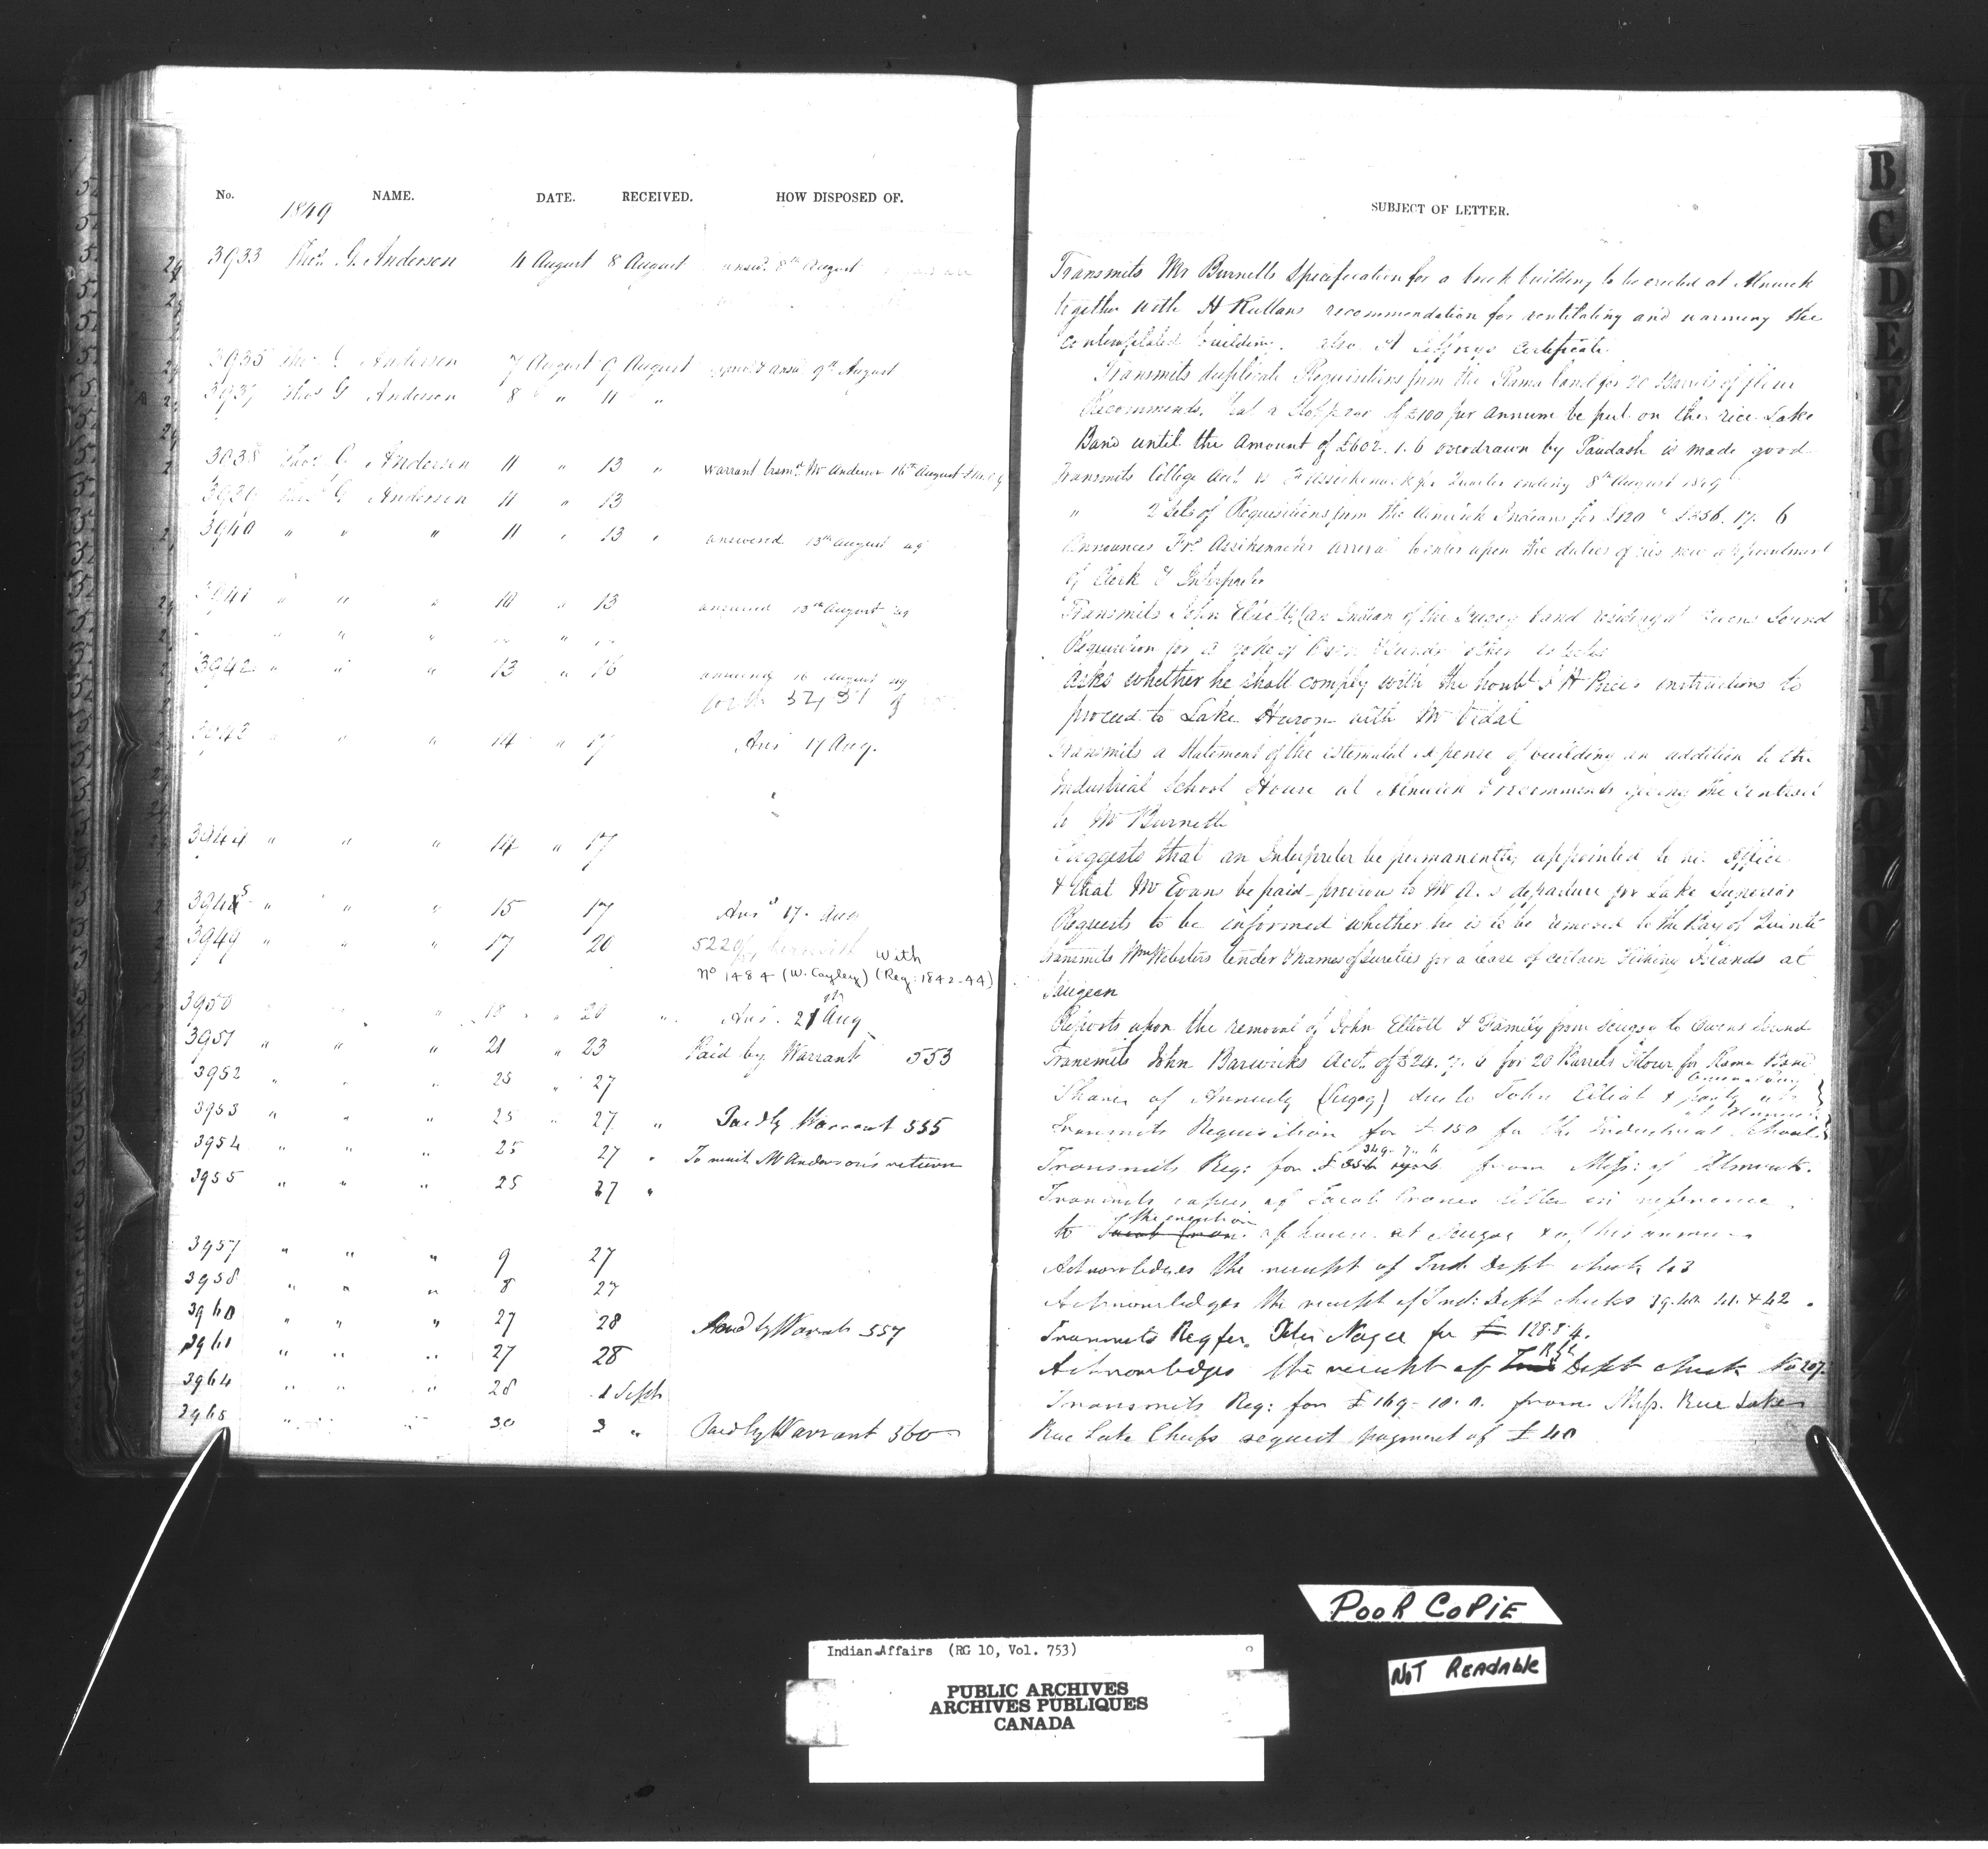 No. NAME. DATE. RECEIVED. HOW DISPOSED OF.
1849
3933 Thos. G. Anderson 4 August 8 August answd. 8th August
3935 Thos G Anderson 7 August 9 August ansd. 9th August
3937 Thos G Anderson 8 " 11 "
3938 Thos G Anderson 11 " 13 " Warrant transd. Mr Anderson 16th August
3939 Thos G. Anderson 11 " 13
3940 " " " 11 " 13 " answered 13th August 49
3941 " " " 10 " 13 answered 13th August 49
" " " " " "
3942 " " " 13 " 16 answered 16 August 49
3943 " " " 14 " 17 Ans 17 Aug.
3944 " " " 14 " 17
3945 " " " 15 17 Ansd 17. Aug
3949 " " " 17 20 with
No 1484 (W. Cayley) (Reg: 1842-44)
3950 " 18 " 20 " Ans. 21st Aug
3951 " " " 21 " 23 Paid by Warrant 553
3952 " " 25 " 27
3953 " " " 25 " 27 " Paid by Warrant 555
3954 " " " 25 27 " To await Mr Anderson's return
3955 " " " 25 27 "
3957 " " " 9 27
3958 " " " 8 27
3960 " " " 27 28 Paid by Warrt 557
3961 " " " 27 28
3964 " " " 28 1 Septr
3965 " " " 30 3 " Paid by Warrant 560
SUBJECT OF LETTER.
Transmits Mr Burnetts Specification for a brick building to be erected at Alnwick
together with H Ruttans recommendation for ventilating and warming the
contemplated building. also A Jeffreys Certificate
Transmits duplicate Requisitions from the Rama band for 20 Barrels of flour
Recommends that a stoppage of £100 per annum be put on the rice Lake
Band until the amount of £602.1.6 overdrawn by Paudash is made good
Transmits College Acct. Assickenack for Quarter ending 8th August 1849
" 2 Sets of Requisitions from the Alnwick Indians for £120 & £356. 17. 6
Announces Frs Assikenacks arrival to enter upon the duties of his new appointment
of Clerk & Interpreter
Transmits John Elliott (an Indian of the Scugog band residing at Owens Sound
Requisition for a yoke of Oxen & sundry other articles
Asks whether he shall comply with the honbl J H Price's instructions to
proceed to Lake Huron with Mr Vidal
Transmits a Statement of the estimated expense of building an addition to the
Industrial School House at Alnwick & recommends giving the contract
to Mr Burnett
Suggests that an Interpreter be permanently appointed to his Office
& that Mr Evans be paid previous to Mr A.s departure for Lake Superior
Requests to be informed whether he is to be removed to the Bay of Quinte
Transmits Wm Websters tender & names of Sureties for a lease of certain Fishing Islands at
Saugeen
Reports upon the removal of John Elliott & Family from Scugog to Owens Sound
Transmits John Barwicks Acct. of £24. 7. 6 for 20 Barrels Flour for Rama Band
Shares of Annuity (Scugog) due to John Elliott & party
Transmits Requisition for £150 for the Industrial School
349. 7. 6
Transmits Req: for £ from Miss: of Alnwick.
Transmits copies of Jacob Cranes letter in reference
the erection
to Jacob Crane of houses at Scugog
Acknowledges the receipt of Ind. Dept check 103
Acknowledges the receipt of Ind: Dept checks 39. 40. 41. & 42.
Transmits Req for Peter Nogee for £ 128. 8. 4.
Acknowledges the receipt of Ind Dept check No 207.
Transmits Req: for £169-10.0. from Miss. Rice Lake
Rice Lake Chiefs request payment of £40
B
C
D
E
F
G
H
I
K
POOR COPIE
NOT READABLE
Indian Affairs (RG 10, Vol. 753)
PUBLIC ARCHIVES
ARCHIVES PUBLIQUES
CANADA